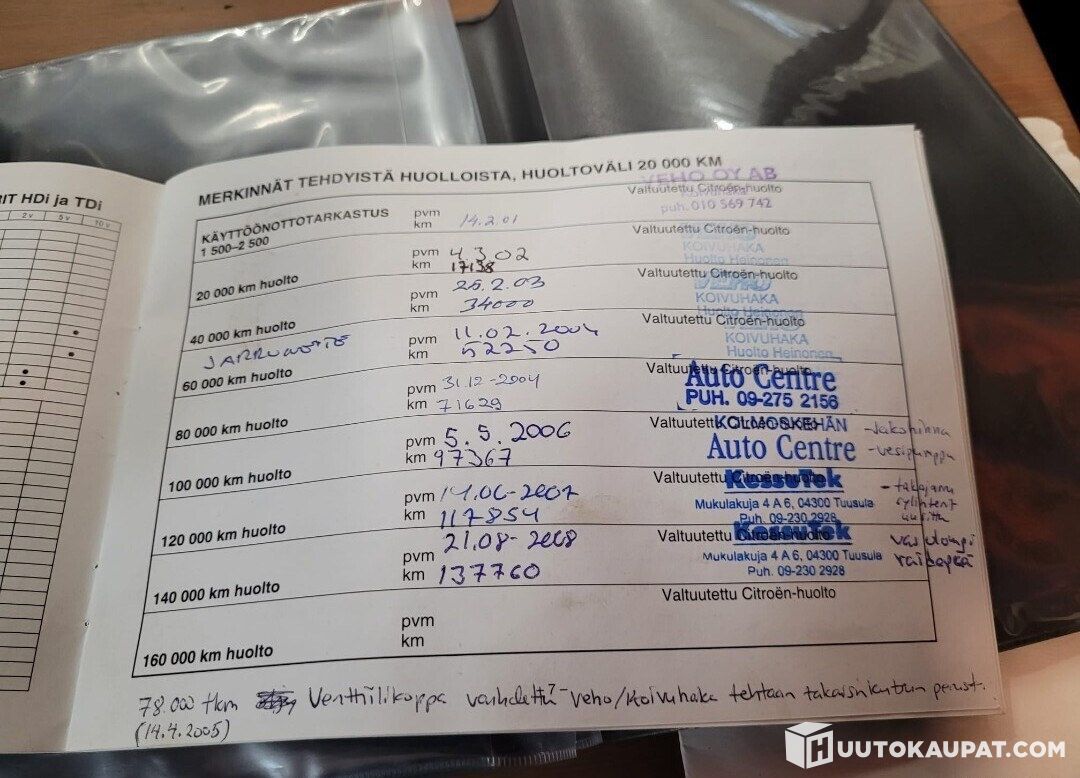 RIT HDi ja TDi
2 v 5 v 10 v
MERKINNÄT TEHDYISTÄ HUOLLOISTA, HUOLTOVÄLI 20 000 KM
VEHO OY AB
KÄYTTÖÖNOTTOTARKASTUS pvm 14.2.01 Valtuutettu Citroën-huolto
1 500–2 500 km puh. 010 569 742
pvm 4.3.02 Valtuutettu Citroën-huolto
20 000 km huolto km 17138 KOIVUHAKA
Huolto Heinonen
pvm 25.2.03 Valtuutettu Citroën-huolto
VEHO
40 000 km huolto km 34000 KOIVUHAKA
Huolto Heinonen
JARRUNESTE pvm 11.02.2004 Valtuutettu Citroën-huolto
KOIVUHAKA
60 000 km huolto km 52250 Huolto Heinonen
pvm 31.12-2004 Valtuutettu Citroën-huolto
Auto Centre
80 000 km huolto km 71629 PUH. 09-275 2156
pvm 5.5.2006 Valtuutettu Citroën-huolto
KOLMOSKEHÄN - Jakohihna
100 000 km huolto km 97367 Auto Centre - vesipumppu
pvm 14.06-2007 Valtuutettu Citroën-huolto
KessuTek - takajarru
Mukulakuja 4 A 6, 04300 Tuusula sylinterit
120 000 km huolto km 117854 Puh. 09-230 2928 uusittu
pvm 21.08-2008 Valtuutettu Citroën-huolto
KessuTek
Mukulakuja 4 A 6, 04300 Tuusula
140 000 km huolto km 137760 Puh. 09-230 2928
pvm Valtuutettu Citroën-huolto
160 000 km huolto km
78.000 tkm Venttiilikoppa vaihdettu - Veho/Koivuhaka tehtaan takaisinkutsun perust.
(14.4.2005)
HUUTOKAUPAT.COM